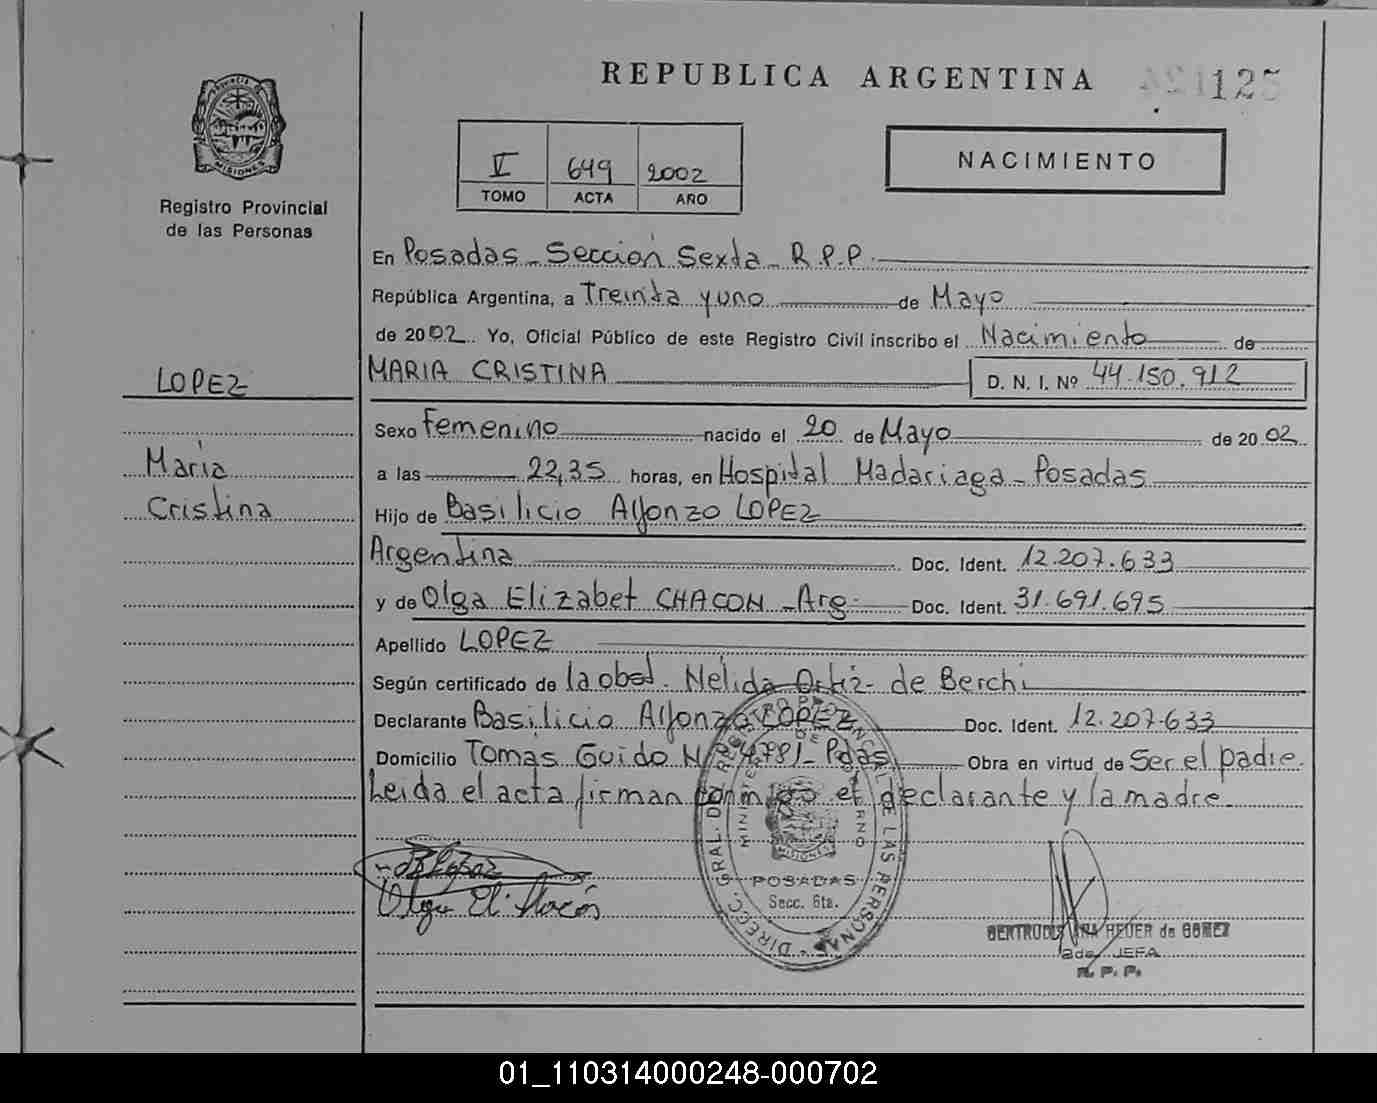 REPUBLICA ARGENTINA
125
PROVINCIA DE
MISIONES
Registro Provincial
de las Personas
V 649 2002
TOMO ACTA AÑO
NACIMIENTO
En Posadas - Sección Sexta - R.P.P.
República Argentina, a Treinta y uno de Mayo
de 2002. Yo, Oficial Público de este Registro Civil inscribo el Nacimiento de
LOPEZ
MARIA CRISTINA D. N. I. Nº 44.150.912
Sexo Femenino nacido el 20 de Mayo de 2002
María
Cristina
a las 22,35 horas, en Hospital Madariaga - Posadas
Hijo de Basilicio Alfonzo LOPEZ
Argentina Doc. Ident. 12.207.633
y de Olga Elizabet CHACON - Arg. Doc. Ident. 31.691.695
Apellido LOPEZ
Según certificado de la obst. Nélida Ortiz de Berchi
Declarante Basilicio Alfonzo LOPEZ Doc. Ident. 12.207.633
Domicilio Tomás Guido Nº 4781 - Pdas Obra en virtud de Ser el padre.
Leida el acta firman conmigo el declarante y la madre.
DIRECC. GRAL. DEL REGISTRO PROVINCIAL DE LAS PERSONAS
MINISTERIO DE GOBIERNO
MISIONES
POSADAS
Secc. 6ta.
GERTRUDIS ANA HEUER de GOMEZ
2da. JEFA
R. P. P.
01_110314000248-000702